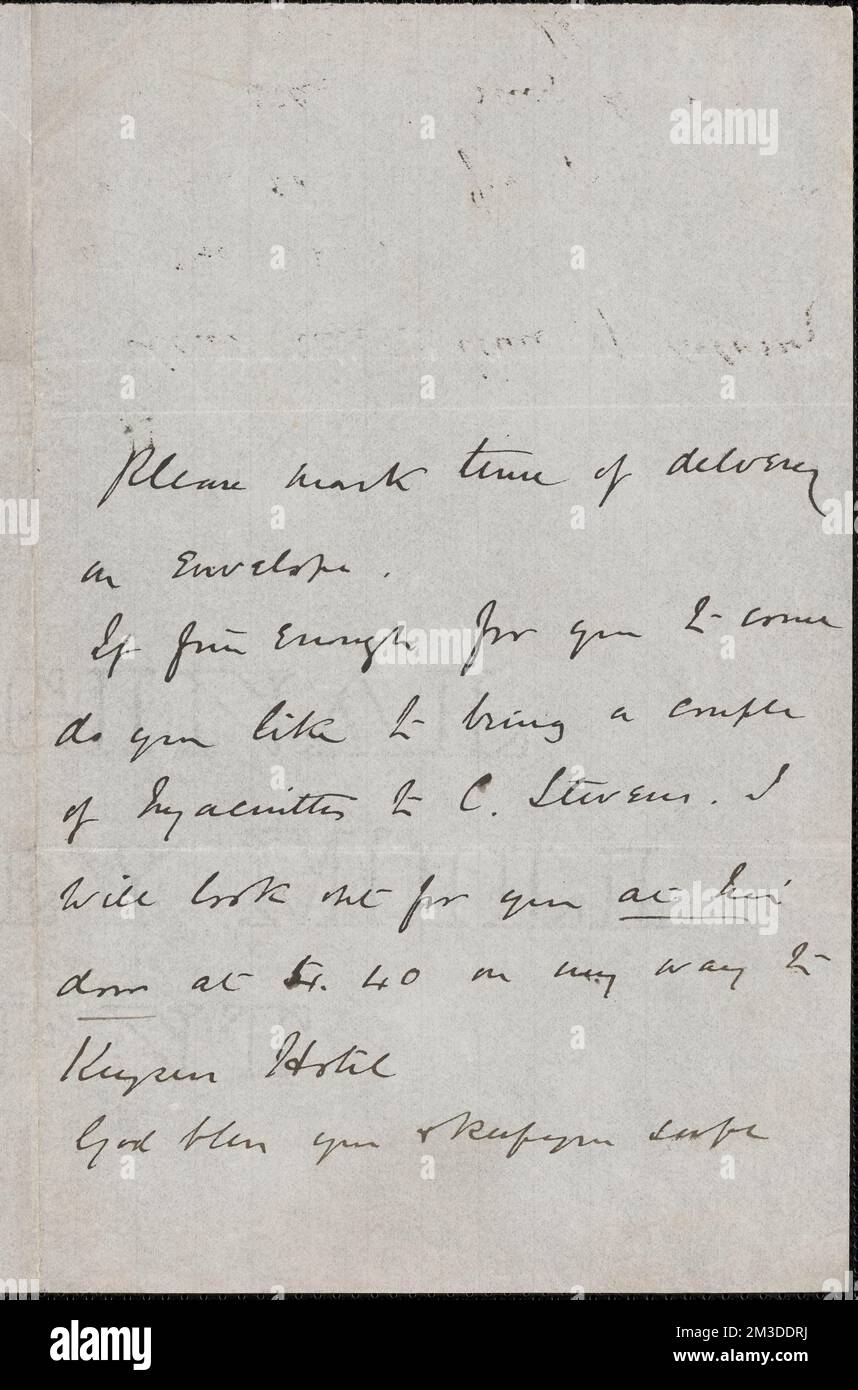 Please mark time of delivery
on Envelope.
If fine Enough for you to come
do you like to bring a couple
of hyacinths to C. Stevens. I
will look out for you at his
door at 4.40 on my way to
Keysers Hotel
God bless you & keep you safe
alamy
alamy
Image ID: 2M3DDRJ
www.alamy.com